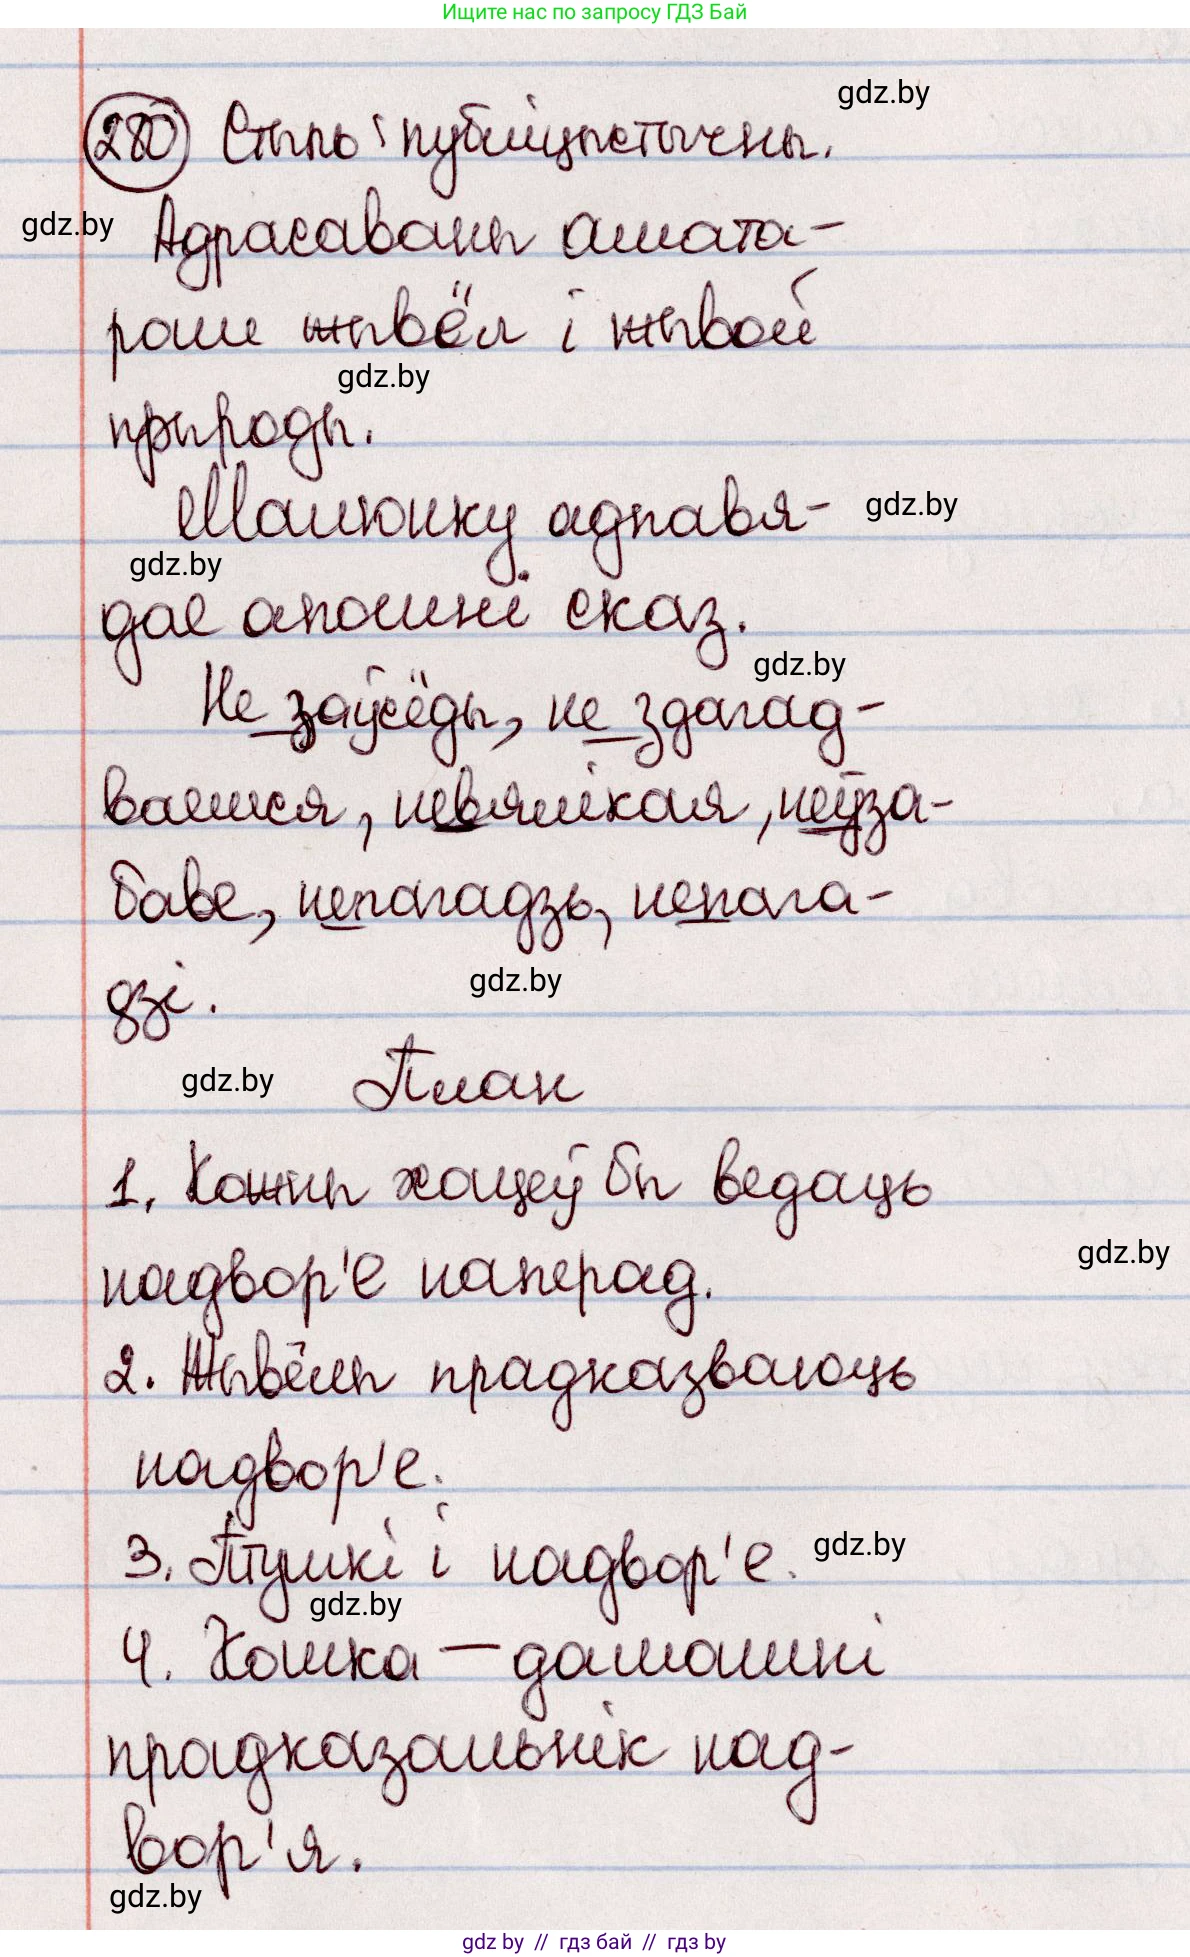 Ищите нас по запросу ГДЗ Бай
280 Стыль: публіцыстычны.
gdz.by
gdz.by
Адрасаваны амата-
рам жывёл і жывой
gdz.by
прыроды.
Малюнку адпавя-
gdz.by
gdz.by
дае апошні сказ.
gdz.by
Не заўсёды, не здагад-
ваемся, невялікая, неўза-
баве, непагадзь, непага-
дзі.
gdz.by
gdz.by
План
1. Кожны хацеў бы ведаць
надвор'е наперад.
gdz.by
2. Жывёлы прадказваюць
надвор'е.
3. Птушкі і надвор'е.
gdz.by
gdz.by
4. Кошка — дамашні
прадказальнік над-
вор'я.
gdz.by
gdz by // гдз бай // gdz by